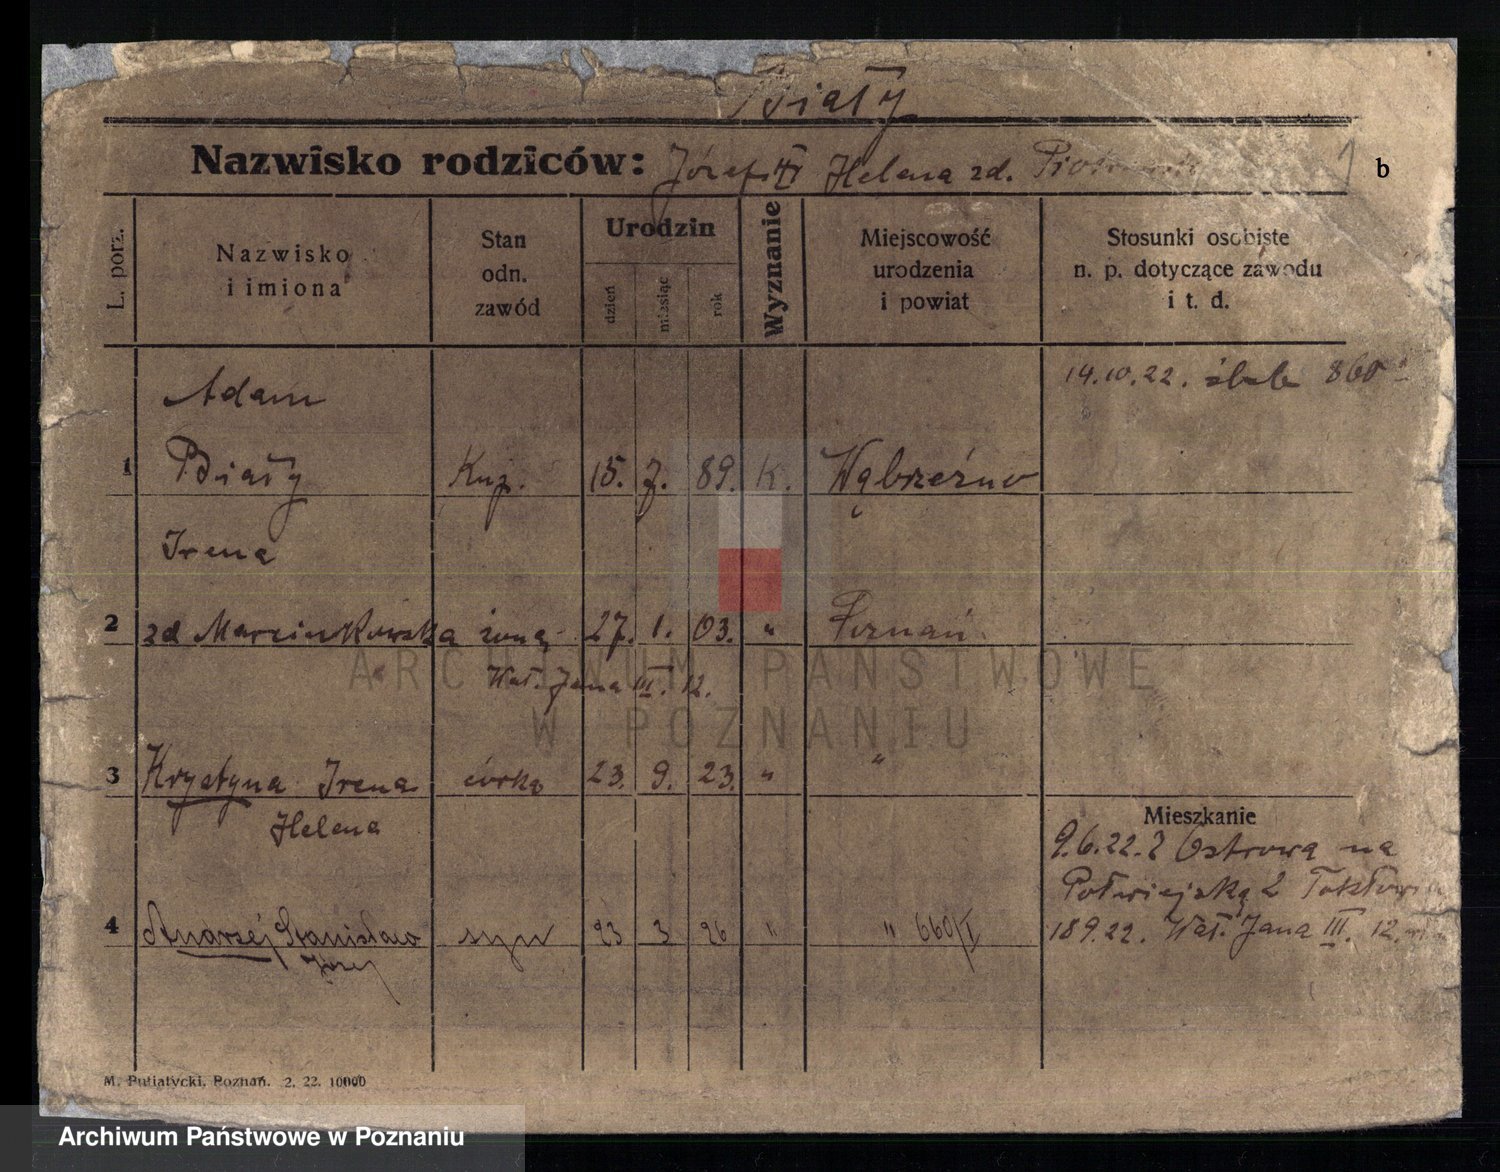 Biały
Nazwisko rodziców: Józef i Helena zd.
b
L. porz.
Nazwisko i imiona
Stan odn. zawód
Urodzin
dzień
miesiąc
rok
Wyznanie
Miejscowość urodzenia i powiat
Stosunki osobiste n. p. dotyczące zawodu i t. d.
14.10.22.
Adam
1 Biały Kup. 15. 7. 89. K. Wąbrzeźno
Irena
2 zd Marcinkowska żona 27. 1. 03. " Poznań.
Wał. Jana III. 12.
3 Krystyna Irena córka 23. 9. 23. " "
Helena
Mieszkanie
9.6.22. z Ostrowa na
Półwiejską 2
4 Andrzej Stanisław syn 23 3 26 " " 660/I
Józef
18.9.22. Wał. Jana III. 12.
M. Putiatycki, Poznań. 2. 22. 10000
ARCHIWUM PAŃSTWOWE
W POZNANIU
Archiwum Państwowe w Poznaniu